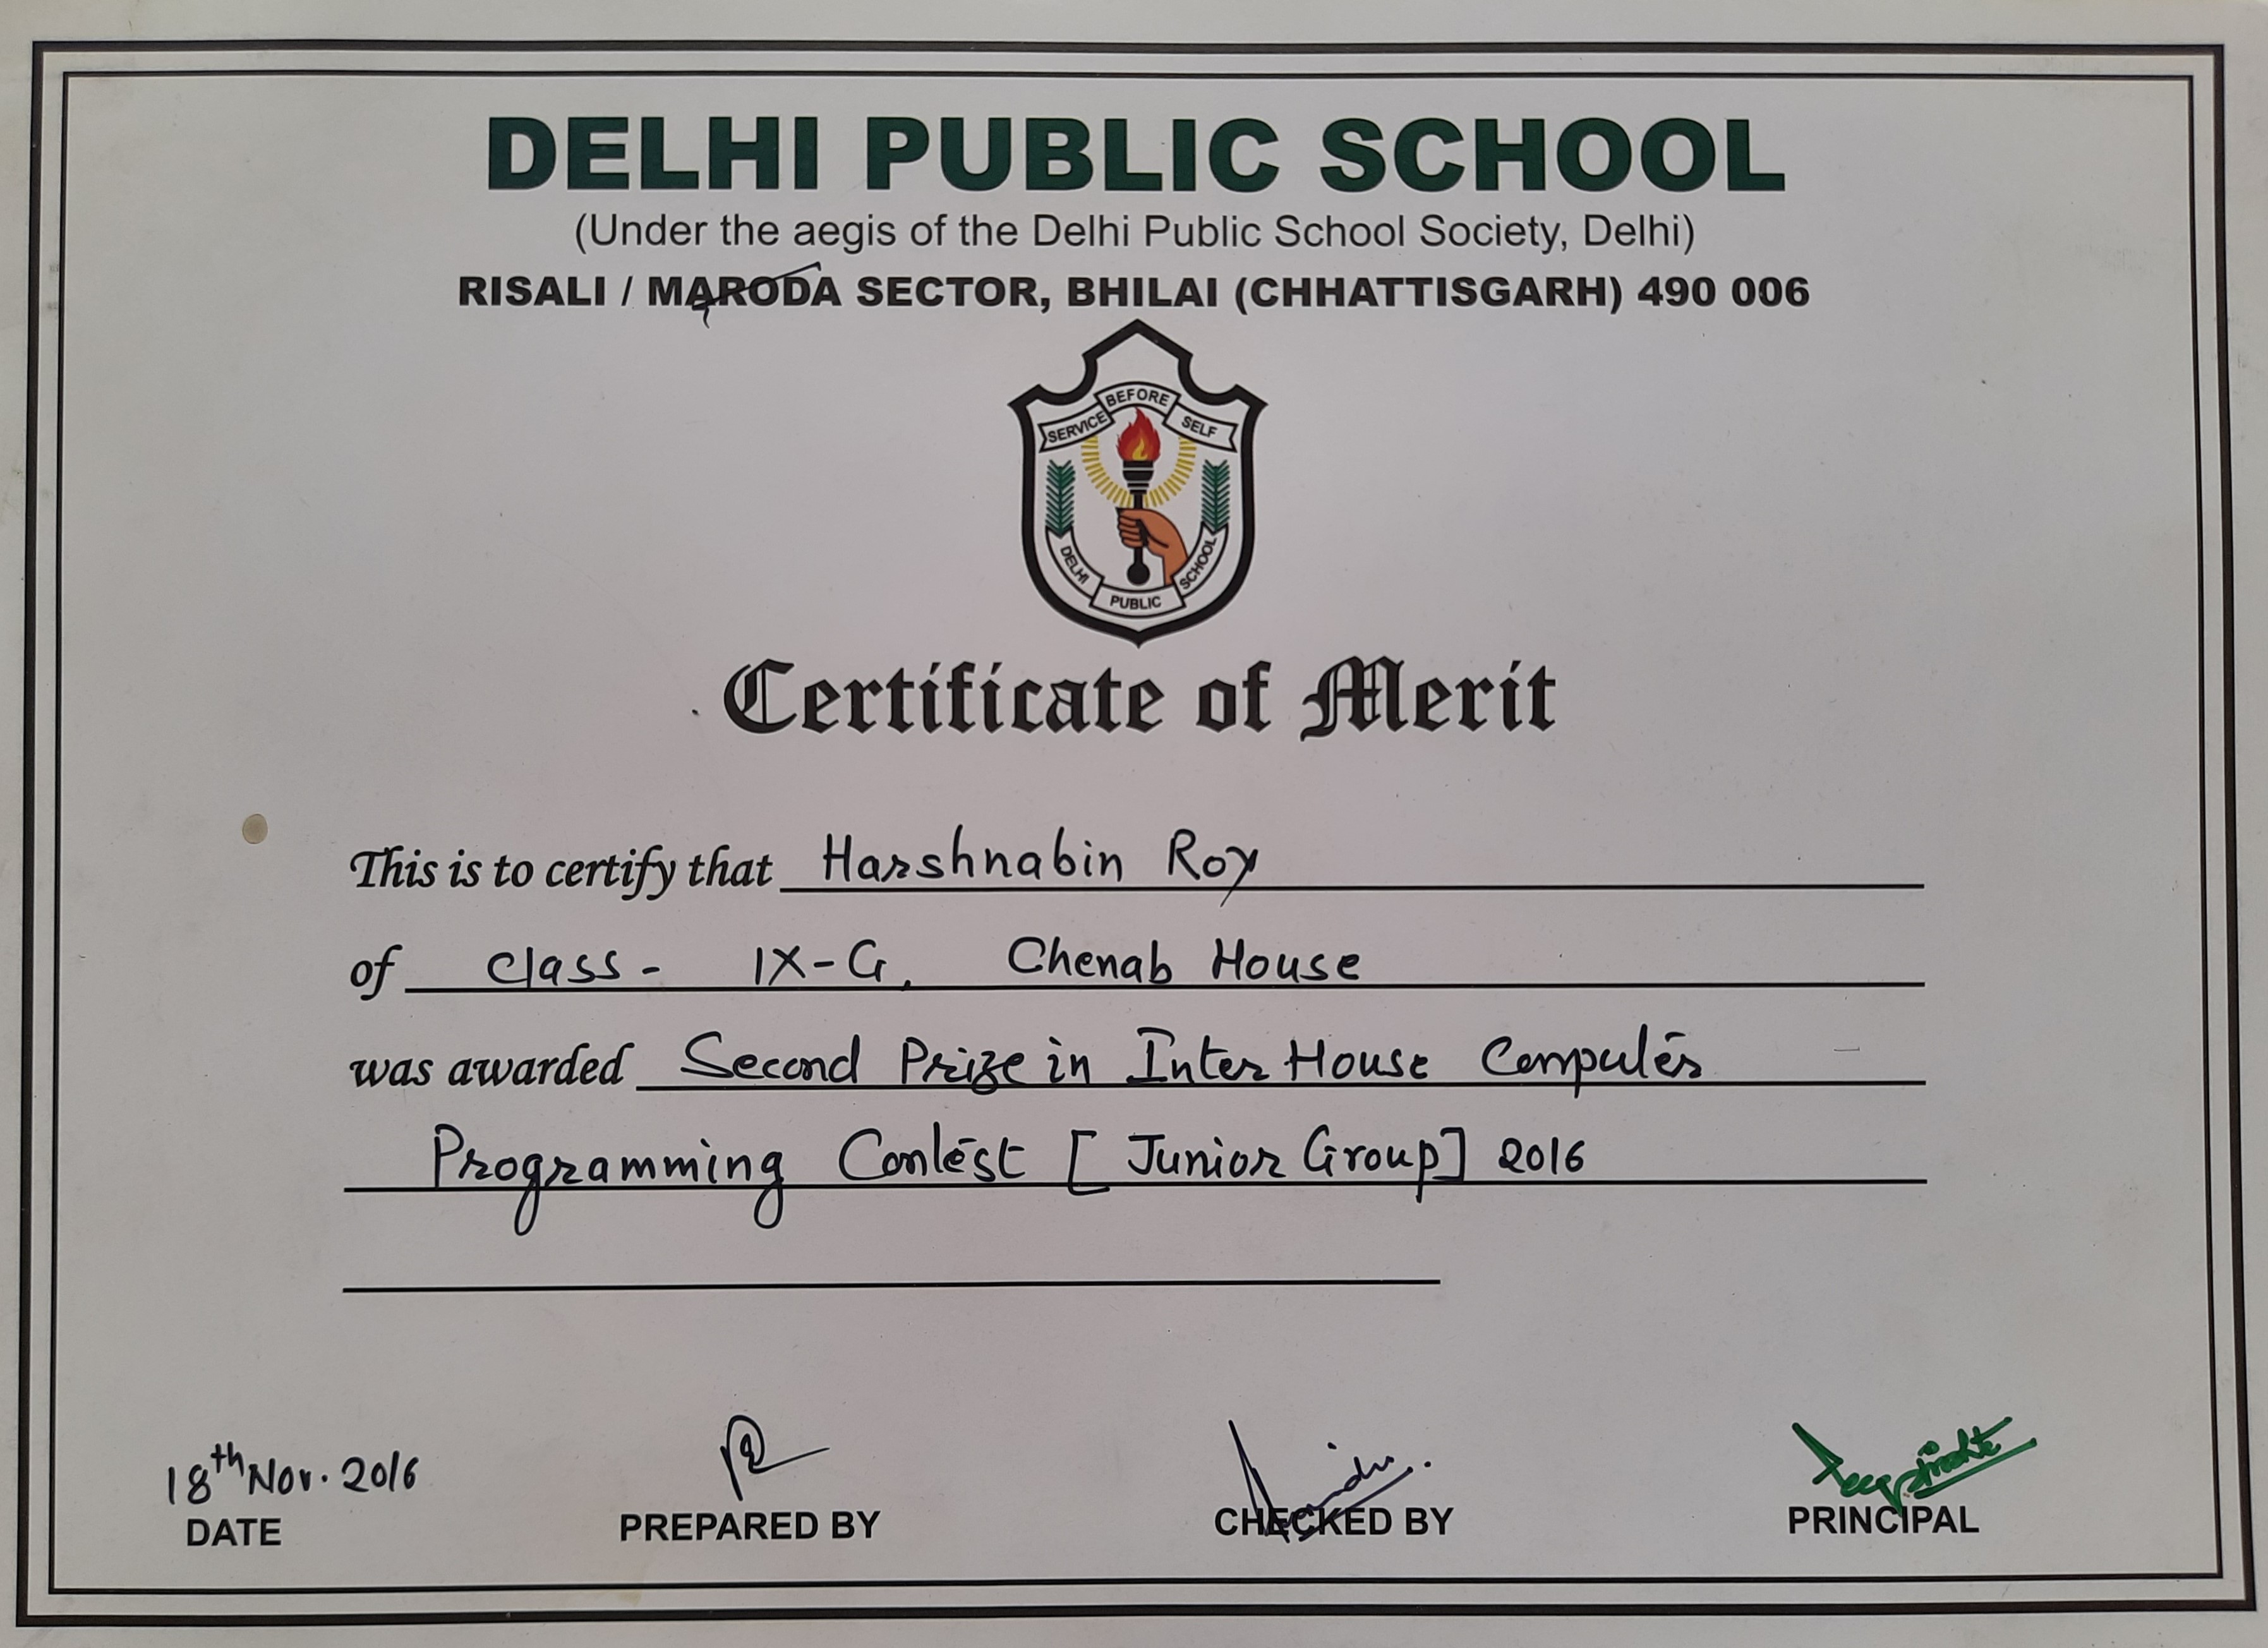 DELHI PUBLIC SCHOOL
(Under the aegis of the Delhi Public School Society, Delhi)
RISALI / MARODA SECTOR, BHILAI (CHHATTISGARH) 490 006
SERVICE BEFORE SELF
DELHI PUBLIC SCHOOL
Certificate of Merit
This is to certify that Harshnabin Roy
of class - IX-G, Chenab House
was awarded Second Prize in Inter House Computer
Programming Contest [Junior Group] 2016
18th Nov. 2016
DATE PREPARED BY CHECKED BY PRINCIPAL